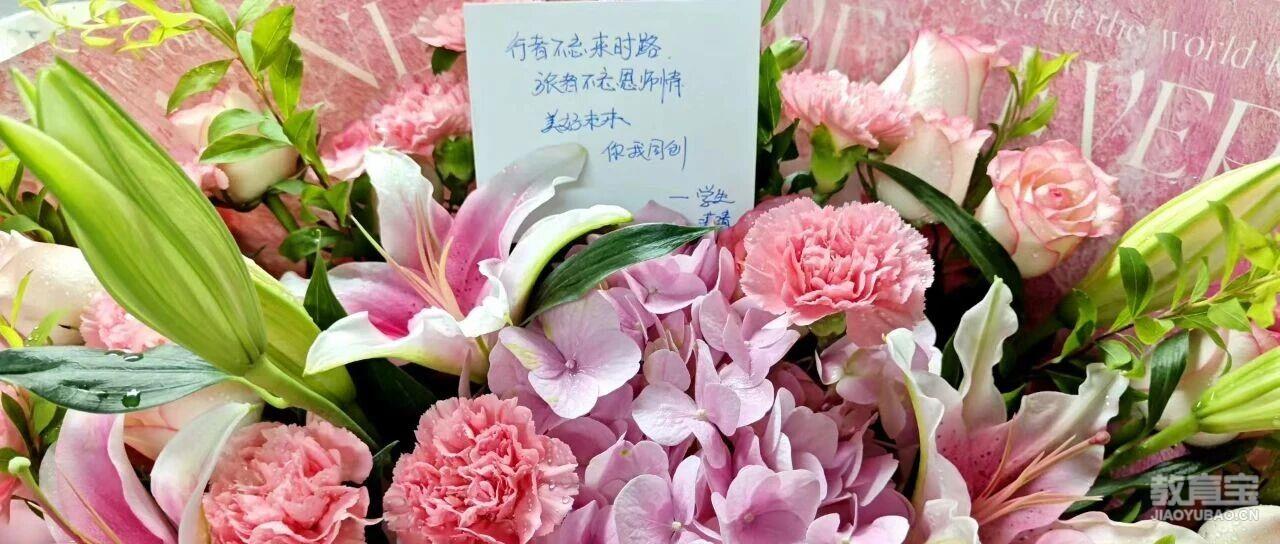 行者不忘来时路
张者不忘恩师情
美好未来
你我同创
一学生
est. let the world k
VE
教育宝
JIAOYUBAO.CN